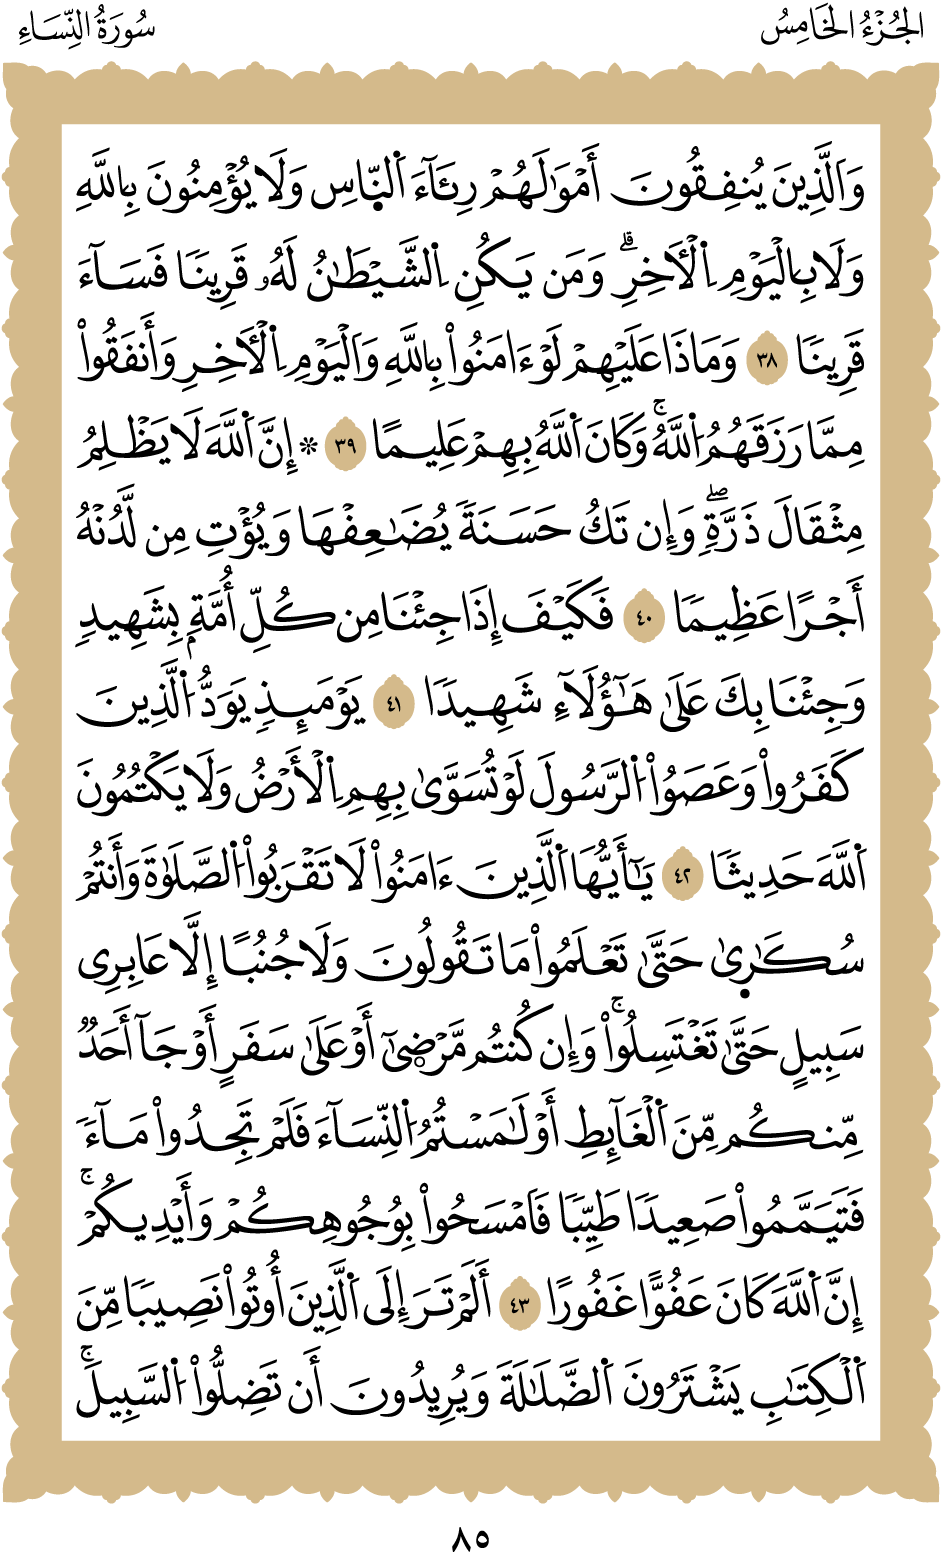 الجُزْءُ الخَامِسُ
سُورَةُ النِّسَاءِ
وَاَلَّذِينَ يُنفِقُونَ أَمْوَٰلَهُمْ رِئَآءَ اَ۬لنّاسِ وَلَا يُؤْمِنُونَ بِاللَّهِ
وَلَا بِالْيَوْمِ اِ۬لْأَخِرِۗ وَمَن يَكُنِ اِ۬لشَّيْطَٰنُ لَهُۥ قَرِينٗا فَسَآءَ
قَرِينٗا ٣٨ وَمَاذَا عَلَيْهِمْ لَوْ ءَامَنُواْ بِاللَّهِ وَالْيَوْمِ اِ۬لْأَخِرِ وَأَنفَقُواْ
مِمَّا رَزَقَهُمُ اُ۬للَّهُۚ وَكَانَ اَ۬للَّهُ بِهِمْ عَلِيمًا ٣٩ ۞ إِنَّ اَ۬للَّهَ لَا يَظْلِمُ
مِثْقَالَ ذَرَّةٖۖ وَإِن تَكُ حَسَنَةٗ يُضَٰعِفْهَا وَيُؤْتِ مِن لَّدُنْهُ
أَجْرًا عَظِيمٗا ٤٠ فَكَيْفَ إِذَا جِئْنَا مِن كُلِّ أُمَّةِۭ بِشَهِيدٖ
وَجِئْنَا بِكَ عَلَىٰ هَٰٓؤُلَآءِ شَهِيدٗا ٤١ يَوْمَئِذٖ يَوَدُّ اُ۬لَّذِينَ
كَفَرُواْ وَعَصَوُاْ اُ۬لرَّسُولَ لَوْ تُسَوَّىٰ بِهِمِ اِ۬لْأَرْضُ وَلَا يَكْتُمُونَ
اَ۬للَّهَ حَدِيثٗا ٤٢ يَٰٓأَيُّهَا اَ۬لَّذِينَ ءَامَنُواْ لَا تَقْرَبُواْ اُ۬لصَّلَوٰةَ وَأَنتُمْ
سُكَٰرٜىٰ حَتَّىٰ تَعْلَمُواْ مَا تَقُولُونَ وَلَا جُنُبًا إِلَّا عَابِرِى
سَبِيلٍ حَتَّىٰ تَغْتَسِلُواْۚ وَإِن كُنتُم مَّرْضٜىٰٓ أَوْ عَلَىٰ سَفَرٍ أَوْ جَآ أَحَدٞ
مِّنكُم مِّنَ اَ۬لْغَآئِطِ أَوْ لَٰمَسْتُمُ اُ۬لنِّسَآءَ فَلَمْ تَجِدُواْ مَآءٗ
فَتَيَمَّمُواْ صَعِيدٗا طَيِّبٗا فَامْسَحُواْ بِوُجُوهِكُمْ وَأَيْدِيكُمْۚ
إِنَّ اَ۬للَّهَ كَانَ عَفُوًّا غَفُورًا ٤٣ أَلَمْ تَرَ إِلَى اَ۬لَّذِينَ أُوتُواْ نَصِيبٗا مِّنَ
اَ۬لْكِتَٰبِ يَشْتَرُونَ اَ۬لضَّلَٰلَةَ وَيُرِيدُونَ أَن تَضِلُّواْ اُ۬لسَّبِيلَۚ
٨٥